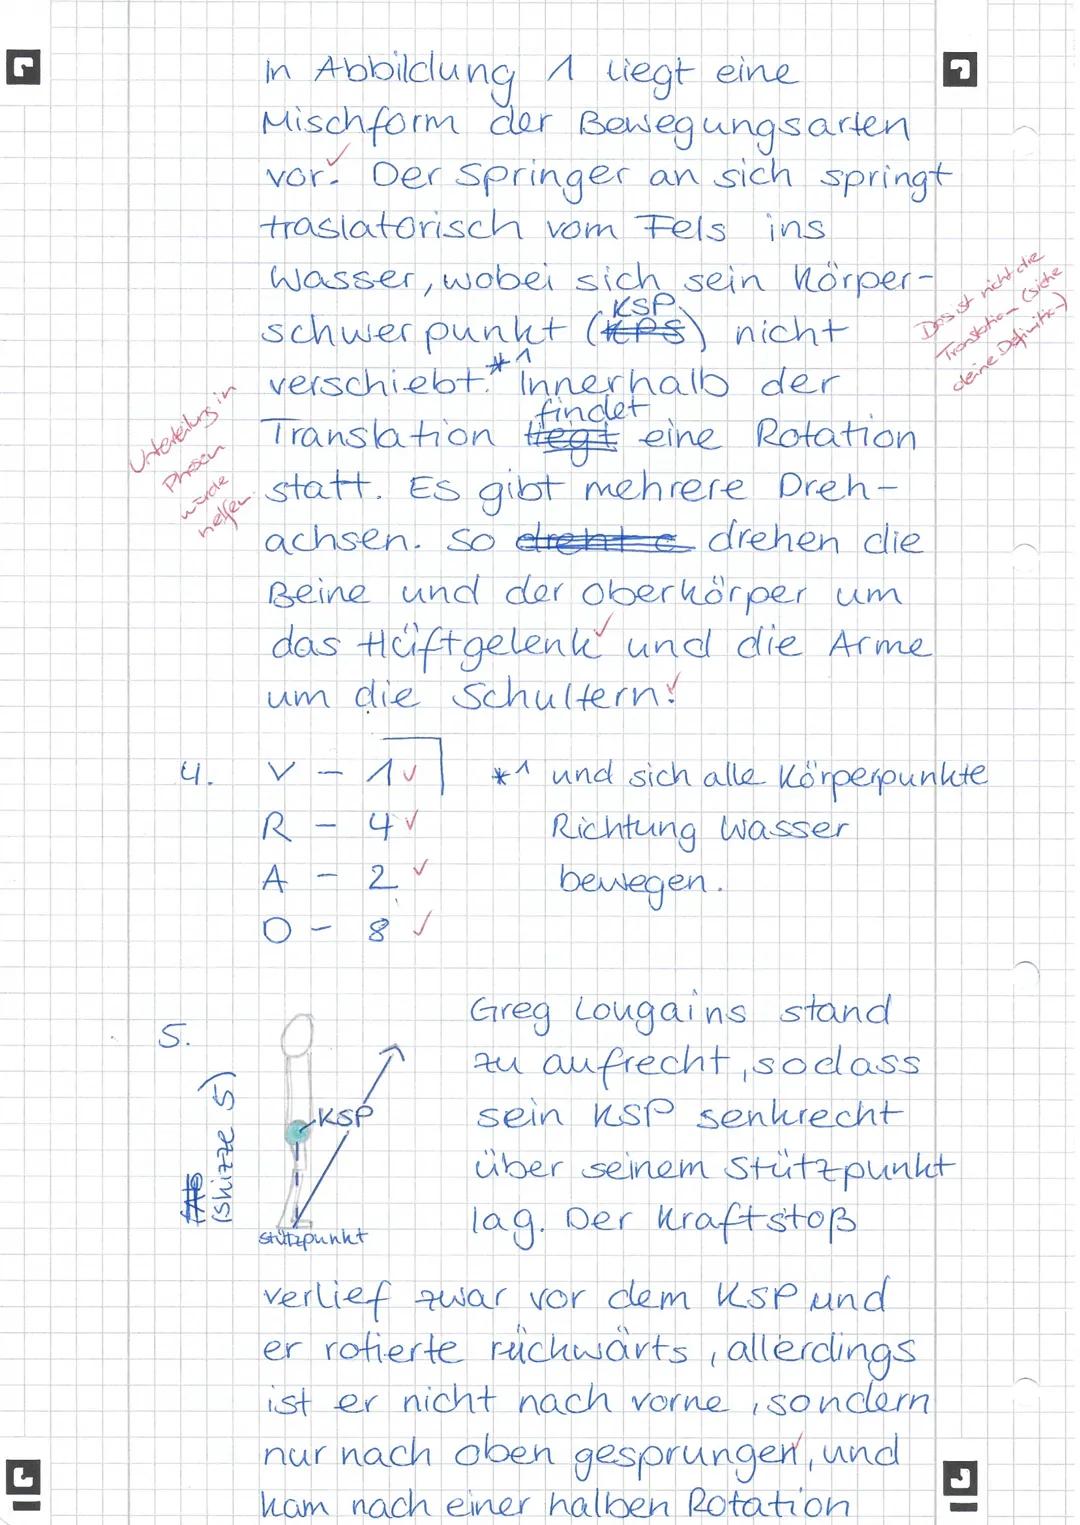 In Abbildung 1 liegt eine
Mischform der Bewegungsarten
vor. Der Springer an sich springt
traslatorisch vom Fels ins
Wasser, wobei sich sein Körper-
schwerpunkt (KPS KSP) nicht
verschiebt.*1 Innerhalb der
Translation liegt findet eine Rotation
statt. Es gibt mehrere Dreh-
achsen. So dreht drehen die
Beine und der Oberkörper um
das Hüftgelenk und die Arme
um die Schultern.
Das ist nicht die
Translation (siehe
deine Definition)
Unterteilung in
Phasen
würde
helfen.
4. V - 1
R - 4
A - 2
O - 8
*1 und sich alle Körperpunkte
Richtung Wasser
bewegen.
5.
(Skizze 5)
KSP
Stützpunkt
Greg Lougains stand
zu aufrecht, sodass
sein KSP senkrecht
über seinem Stützpunkt
lag. Der Kraftstoß
verlief zwar vor dem KSP und
er rotierte rückwärts, allerdings
ist er nicht nach vorne, sondern
nur nach oben gesprungen, und
kam nach einer halben Rotation